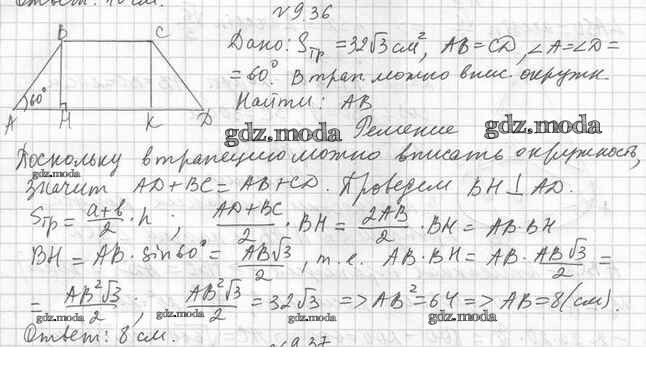 Ответ: 10 см.
№9.36
B C
Дано: Sтр = 32√3 см², AB = CD, ∠A = ∠D =
= 60°. В трап. можно впис. окружн.
60°
Найти: AB
A H K D
gdz.moda Решение gdz.moda
Поскольку в трапецию можно вписать окружность,
gdz.moda
значит AD + BC = AB + CD. Проведем BH ⊥ AD.
Sтр = (a+b)/2 · h ; (AD+BC)/2 · BH = 2AB/2 · BH = AB · BH
BH = AB · sin60° = AB√3/2 , т.е. AB · BH = AB · AB√3/2 =
= AB²√3/2 ; AB²√3/2 = 32√3 => AB² = 64 => AB = 8 (см).
gdz.moda gdz.moda gdz.moda gdz.moda
Ответ: 8 см.
№9.37